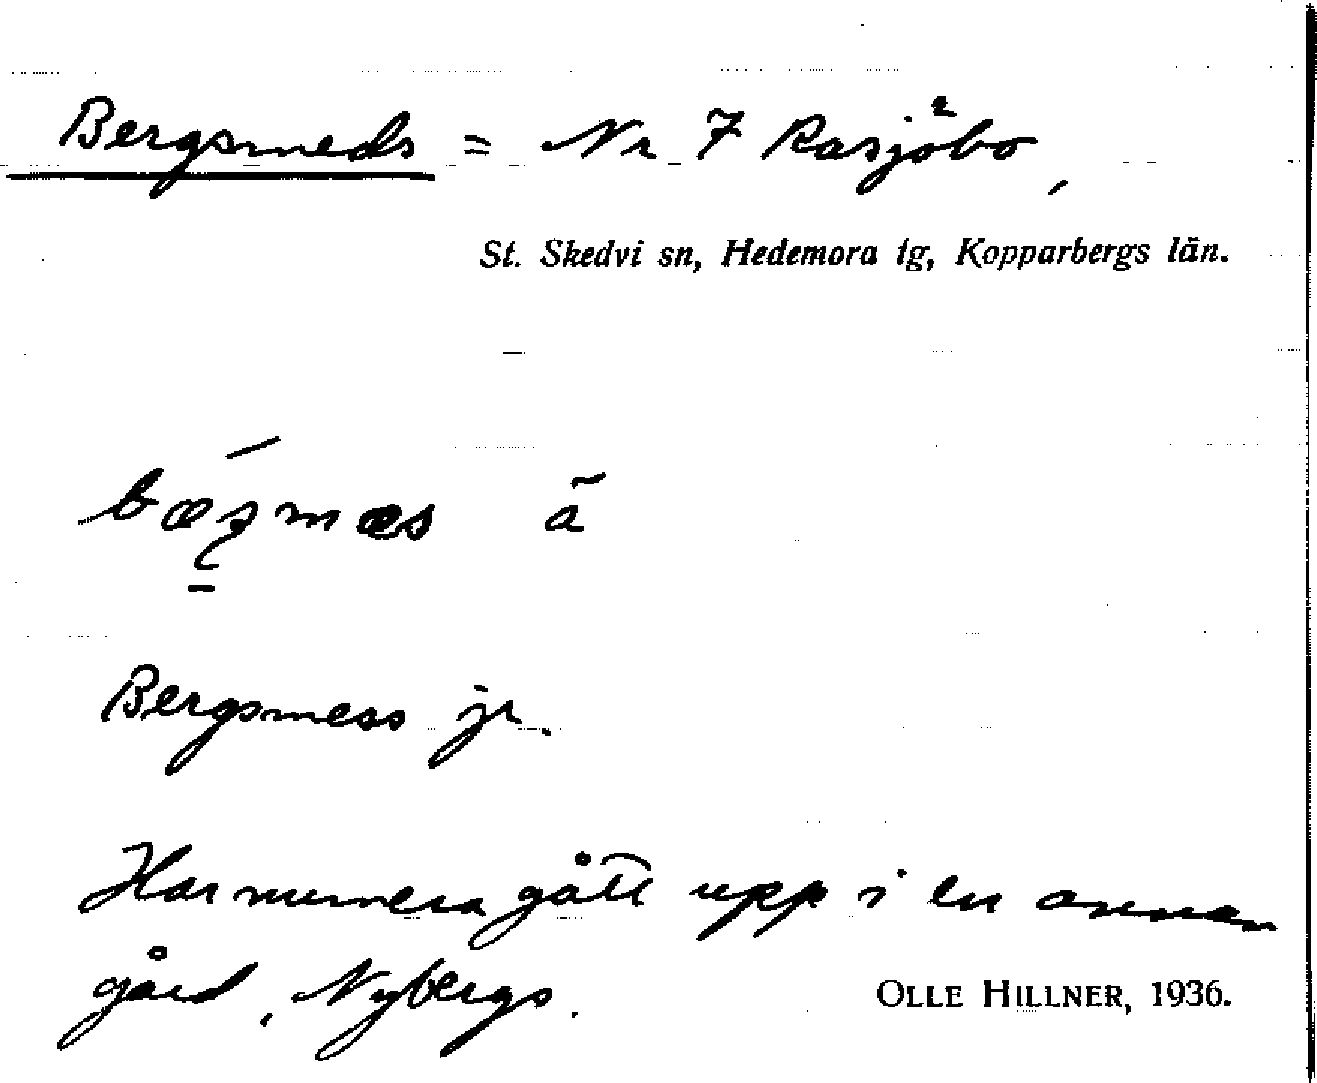 Bergsmeds = Nr 7 Rasjöbo,
St. Skedvi sn, Hedemora tg, Kopparbergs län.
ã
Bergsmess jr.
Har numera gått upp i en annan
gård, Nybergs.
OLLE HILLNER, 1936.